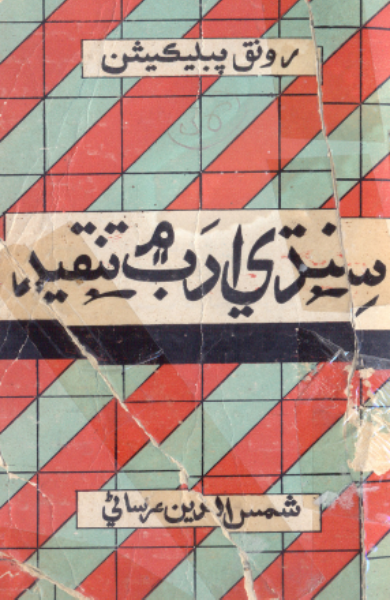 رونق پبليڪيشن
سنڌي ادب ۾ تنقيد
شمس الدين عرساڻي